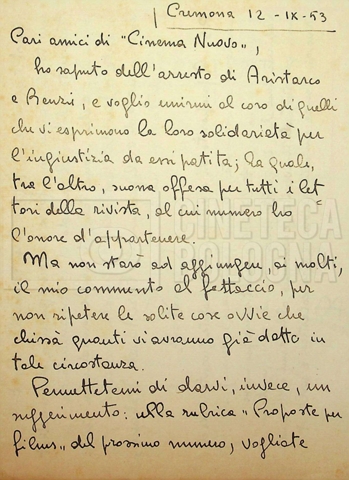 Cremona 12-IX-53
Cari amici di "Cinema Nuovo",
ho saputo dell'arresto di Aristarco
e Renzi, e voglio unirmi al coro di quelli
che vi esprimono la loro solidarietà per
l'ingiustizia da essi patita; la quale,
tra l'altro, suona offesa per tutti i let-
tori della rivista, al cui numero ho
l'onore d'appartenere.
Ma non starò ad aggiungere, ai molti,
il mio commento al fattaccio, per
non ripetere le solite cose ovvie che
chissà quanti vi avranno già detto in
tale circostanza.
Permettetemi di darvi, invece, un
suggerimento: nella rubrica "Proposte per
films" del prossimo numero, vogliate
CINETECA
BOLOGNA